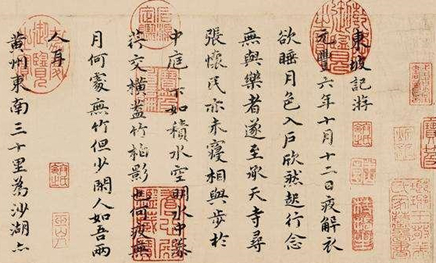 東坡記游
元豐六年十月十二日夜解衣
欲睡月色入戶欣然起行念
無與樂者遂至承天寺尋
張懷民亦未寢相與步於
中庭下如積水空明水中藻
荇交橫蓋竹柏影也何夜無
月何處無竹但少閑人如吾兩
人耳
黄州東南三十里為沙湖亦